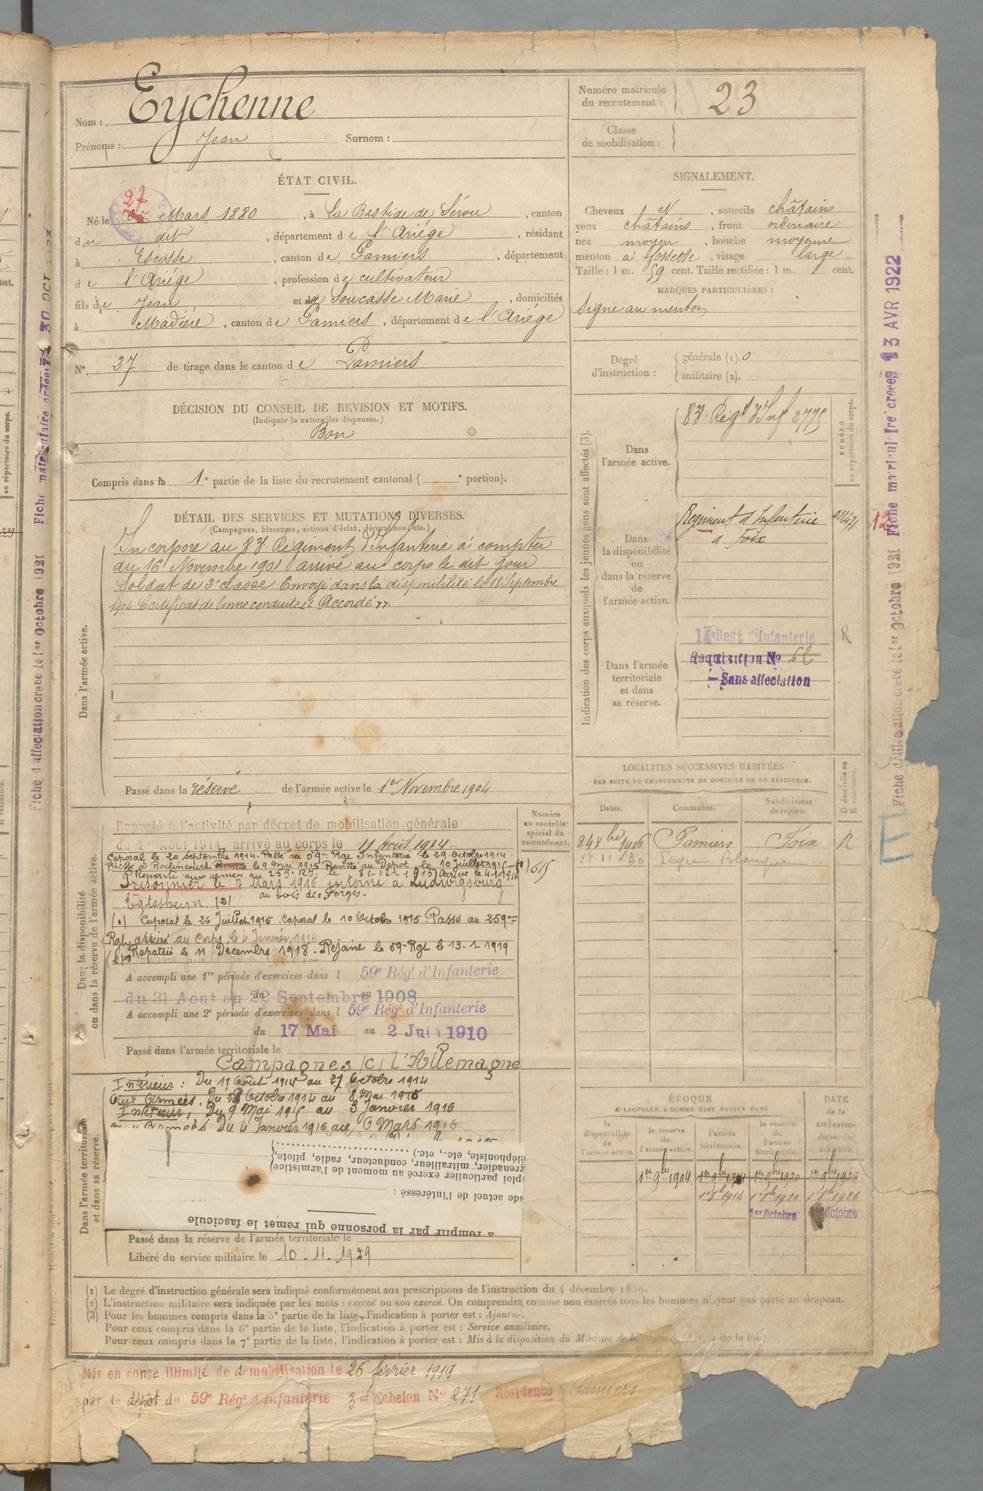 Nom : Eychenne
Prénoms : Jean Surnom :
Numéro matricule
du recrutement : 23
Classe
de mobilisation :
ÉTAT CIVIL.
Né le 27 Mars 1880 , à La Bastide de Sérou , canton
du dit , département de l'Ariége , résidant
à Escosse , canton de Pamiers , département
de l'Ariége , profession de cultivateur
fils de Jean et de Soucasse Marie , domiciliés
à Madière , canton de Pamiers , département de l'Ariége
N° 37 de tirage dans le canton de Pamiers
SIGNALEMENT.
Cheveux et , sourcils châtains
yeux châtains , front ordinaire
nez moyen , bouche moyenne
menton à fossette , visage large
Taille : 1 m. 59 cent. Taille rectifiée : 1 m. cent.
MARQUES PARTICULIÈRES :
Signe au menton
Degré
d'instruction :
générale (1). 0
militaire (2).
DÉCISION DU CONSEIL DE REVISION ET MOTIFS.
(Indiquer la nature des dispenses.)
Bon
Compris dans la 1e partie de la liste du recrutement cantonal ( e portion).
DÉTAIL DES SERVICES ET MUTATIONS DIVERSES.
(Campagnes, blessures, actions d'éclat, décorations, etc.)
Incorporé au 83e Régiment d'Infanterie à compter
du 16 Novembre 1901 arrivé au corps le dit jour
Soldat de 2e classe Envoyé dans la disponibilité le 18 Septembre
1904 Certificat de bonne conduite Accordé
Dans l'armée active.
Passé dans la réserve de l'armée active le 1er Novembre 1904
Indication des corps auxquels les jeunes gens sont affectés (3).
NUMÉRO
au répertoire du corps.
Dans
l'armée active.
83e Regt d'Inf 2775
Dans
la disponibilité
ou
dans la réserve
de
l'armée active.
Régiment d'Infanterie
à Foix
Dans l'armée
territoriale
et dans
sa réserve.
Regt d'Infanterie
Réquisition No 62
Sans affectation
R
Fiche d'affectation créée le 1er Octobre 1921 Fiche matricul ire créée 13 AVR 1922
LOCALITÉS SUCCESSIVES HABITÉES
PAR SUITE DE CHANGEMENTS DE DOMICILE OU DE RÉSIDENCE.
Dates. Communes. Subdivisions
de région.
24 8bre 1906 Pamiers Foix R
Numéro
au contrôle
spécial du
recrutement.
1615
Dans la disponibilité
ou dans la réserve de l'armée active.
Rappelé à l'activité par décret de mobilisation générale
du 1er Août 1914 arrivé au corps le 11 Août 1914
Caporal le 20 septembre 1914. Passé au 59e Rgt Infanterie le 29 Octobre 1914
Prisonnier le 7 Mars 1916 interné à Ludwigsburg
Eglosheim (2)
Caporal le 26 Juillet 1915 Caporal le 10 Octobre 1915 Passé au 259e
Rgt arrivé au corps le 4 Janvier 1916
Rapatrié le 11 Décembre 1918. Rejoint le 59 Rgt le 13-1-1919
A accompli une 1re période d'exercices dans l 59e Rég' d'Infanterie
du 31 Aout au 22 Septembre 1908
A accompli une 2e période d'exercices dans l 59e Rég' d'Infanterie
du 17 Mai au 2 Juin 1910
Passé dans l'armée territoriale le
Campagnes c/ l'Allemagne
Intérieur : Du 11 Août 1914 au 27 Octobre 1914
Aux Armées, Du 28 Octobre 1914 au 8 Mai 1915
Intérieur, Du 9 Mai 1915 au 3 Janvier 1916
Armées Du 4 Janvier 1916 au 6 Mars 1916
à remplir par la personne qui remet le fascicule
Dans l'armée territoriale
et dans sa réserve.
Passé dans la réserve de l'armée territoriale le
Libéré du service militaire le 10. 11. 1929
ÉPOQUE
À LAQUELLE L'HOMME DOIT PASSER DANS
DATE
de la
LIBÉRATION
du service
militaire.
la
disponibilité
de
l'armée active.
la réserve
de
l'armée active.
l'armée
territoriale.
la réserve
de
l'armée
territoriale.
1er 9bre 1904 1er 9bre 1914 1er 9bre 1920 1er 9bre 1926
1er 8bre 1914 1er 8bre 1920 1er 8bre 1926
1er Octobre Octobre
(1) Le degré d'instruction générale sera indiqué conformément aux prescriptions de l'instruction du 4 décembre 1889.
(2) L'instruction militaire sera indiquée par les mots : exercé ou non exercé. On comprendra comme non exercés tous les hommes n'ayant pas passé au drapeau.
(3) Pour les hommes compris dans la 5e partie de la liste, l'indication à porter est : Ajourné.
Pour ceux compris dans la 6e partie de la liste, l'indication à porter est : Service auxiliaire.
Pour ceux compris dans la 7e partie de la liste, l'indication à porter est : Mis à la disposition du Ministre de la
Mis en congé illimité de démobilisation le 26 février 1919
par le dépôt du 59e Rég' d'Infanterie 3e Echelon No 271 Résidence Pamiers